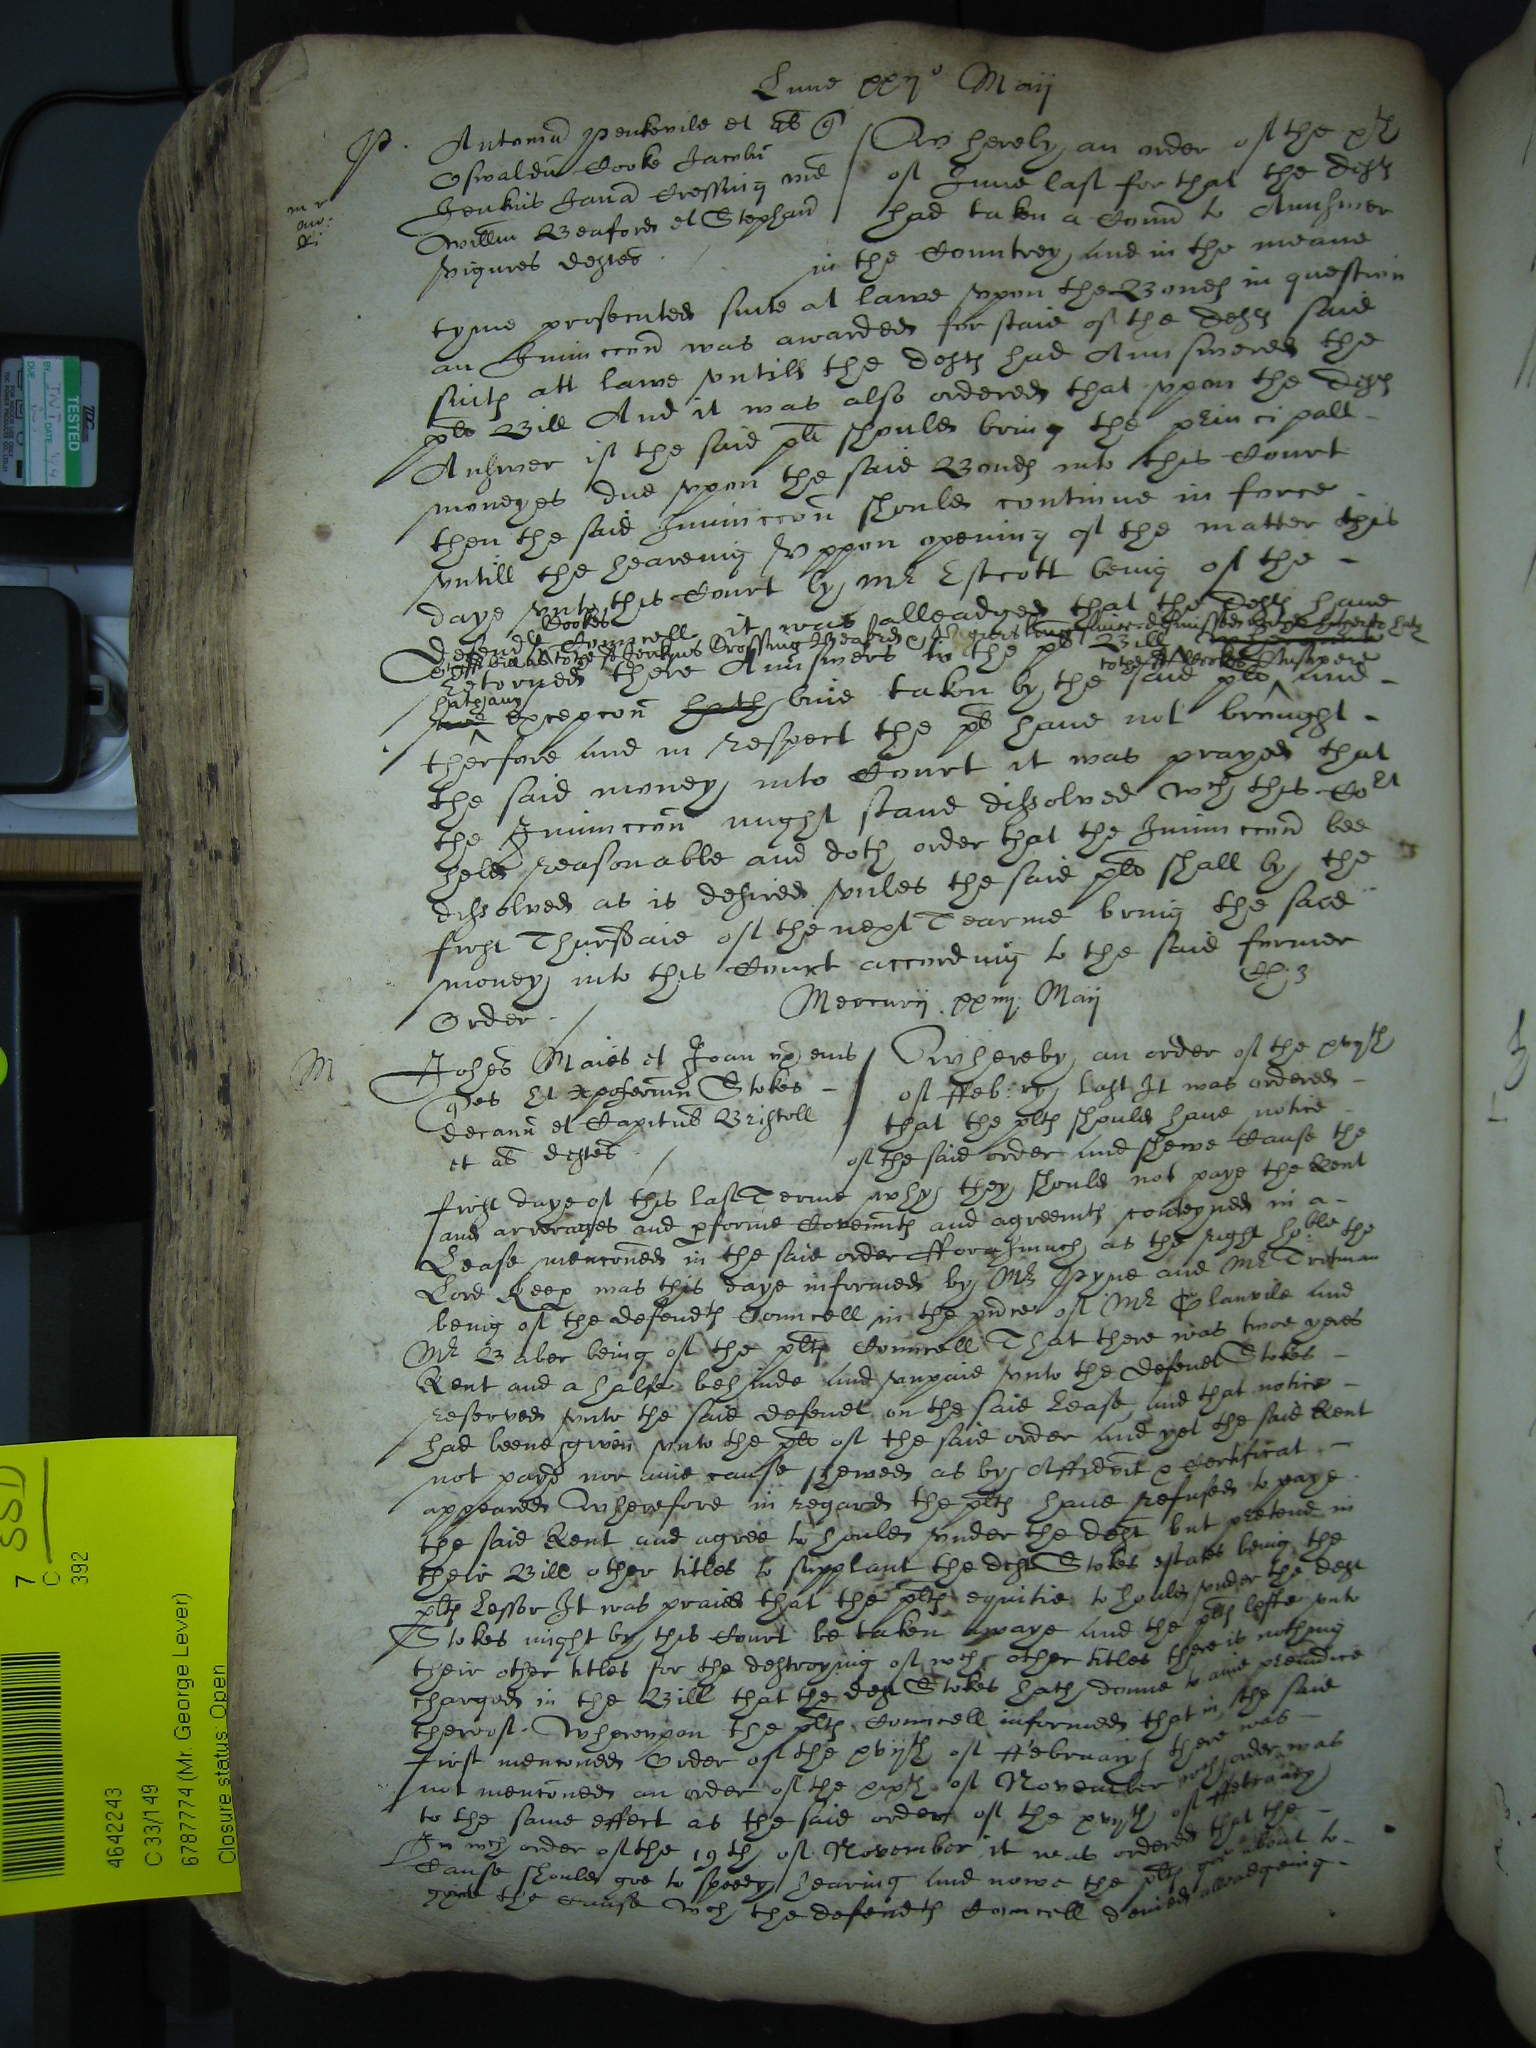 Lune xxij° Maij
P. Antoniu Penkevile et als q
Oswaldu Cooke Jacobu
Jenkins Janã Crossing vid
Willm Beaford et Stephan
Vigures deftes
m r
Whereby an order of the xth
of June last for that the defts
had taken a Comn to Aunswer
in the Countrey and in the meane
tyme prosecuted suite at lawe vpon the Bonds in question
an Iniunccon was awarded for staie of the defts said
suits att lawe vntill the defts had Aunswered the
plts Bill And it was also ordered that vpon the defts
Answer if the said plt should bring the principall
moneyes due vpon the said Bonds into this Court
then the said Iniunccon should continue in force
vntill the heareing Vppon opening of the matter this
daye vnto this Court by Mr Estcott being of the
defendts Councell it was alleadged that the defts haue
Cookes
Jenkins Crossing Beaford Vigures
retorned there Aunswers to the plts Bill
hath any
to the deft Cookes Answere
excepcon hath bine taken by the said plts and
therfore and in respect the plt haue not brought
the said money into Court it was prayed that
the Iniunccon might stand dissolved wch this Cort
held reasonable and doth order that the Iniunccon bee
dissolved as is desired vnles the said plts shall by the
first Thursdaie of the next Tearme bring the said
money into this Court according to the said former
Order
Mercurij xxiiij Maij
M Johes Maies et Joan vx eius
Ples et Xpoferum Stokes
decanu et Capitul Bristoll
et als deftes
Whereby an order of the xvijth
of Feb:ry last It was ordered
that the plts should haue notice
of the said order and shewe Cause the
first daye of this last Terme why they should not paye the Rent
and arrerages and pforme Covennts and agreemts conteyned in a
Lease menconed in the said order fforasmuch as the right hoble the
Lord Keep was this daye informed by Mr Pyne and Mr Trotman
being of the defendts Councell in the pnce of Mr Glanvile and
Mr Baber being of the plts Councell That there was twoe yeres
Rent and a halfe behinde and vnpaid vnto the defendt Stokes
reserved vnto the said defendt on the said Lease and that notice
had beene given vnto the plts of the said order and yet the said Rent
not payd nor anie cause shewed as by Affidvit & Certificat
appeared Wherefore in regard the plts haue refused to paye
the said Rent and agree to hould vnder the deft but pretend in
their Bill other titles to supplant the deft Stokes estates being the
plts Lessor It was praied that the plts equitie to hould vnder the deft
Stokes might by this Court be taken awaye and the plts lefte vnto
their other titles for the destroying of wch other titles there is nothing
charged in the Bill that the deft Stokes hath donne to anie preiudice
thereof. Wherevpon the plts Councell informed that in the said
first menconed Order of the xvijth of ffebruary there was
not menconed an order of the xixth of November wch order was
to the same effect as the said order of the xvijth of ffebruary
In wch order of the 19th of November it was ordered that the
Cause should goe to speedy hearing and nowe the plts goe about to
the Cause wch the defendts Councell denied alleadgeing
TESTED
BY
DATE
DUE
7
C
392
SSD
4642243
C 33/149
6787774 (Mr. George Lever)
Closure status: Open